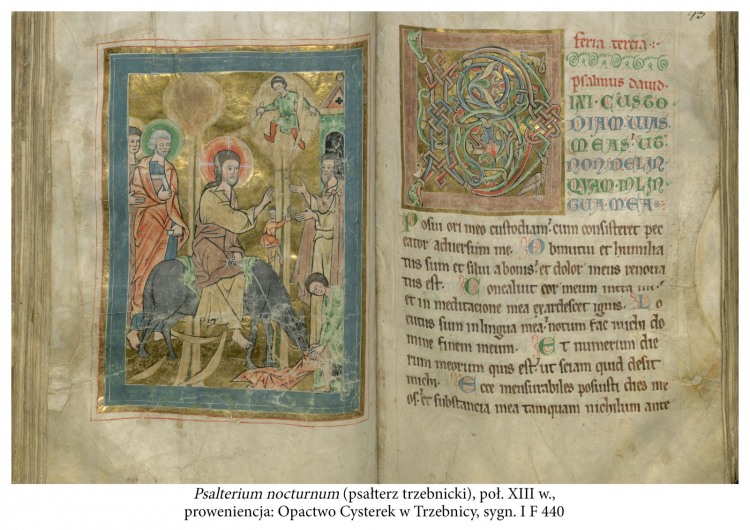 43
feria tercia
psalmus dauid
DIXI · CUSTO
DIAM · UIAS
MEAS · UT
NON DELIN
QUAM · IN LIN
GUA MEA
Posui ori meo custodiam. cum consisteret pec
cator aduersum me. Obmutui et humilia
tus sum et silui a bonis. et dolor meus renoua
tus est. Concaluit cor meum intra
et in meditacione mea exardescet ignis. Lo
cutus sum in lingua mea. notum fac michi do
mine finem meum. Et numerum die
rum meorum quis est. ut sciam quid desit
michi. Ecce mensurabiles posuisti dies me
os. et substancia mea tamquam nichilum ante
Psalterium nocturnum (psałterz trzebnicki), poł. XIII w.,
proweniencja: Opactwo Cysterek w Trzebnicy, sygn. I F 440